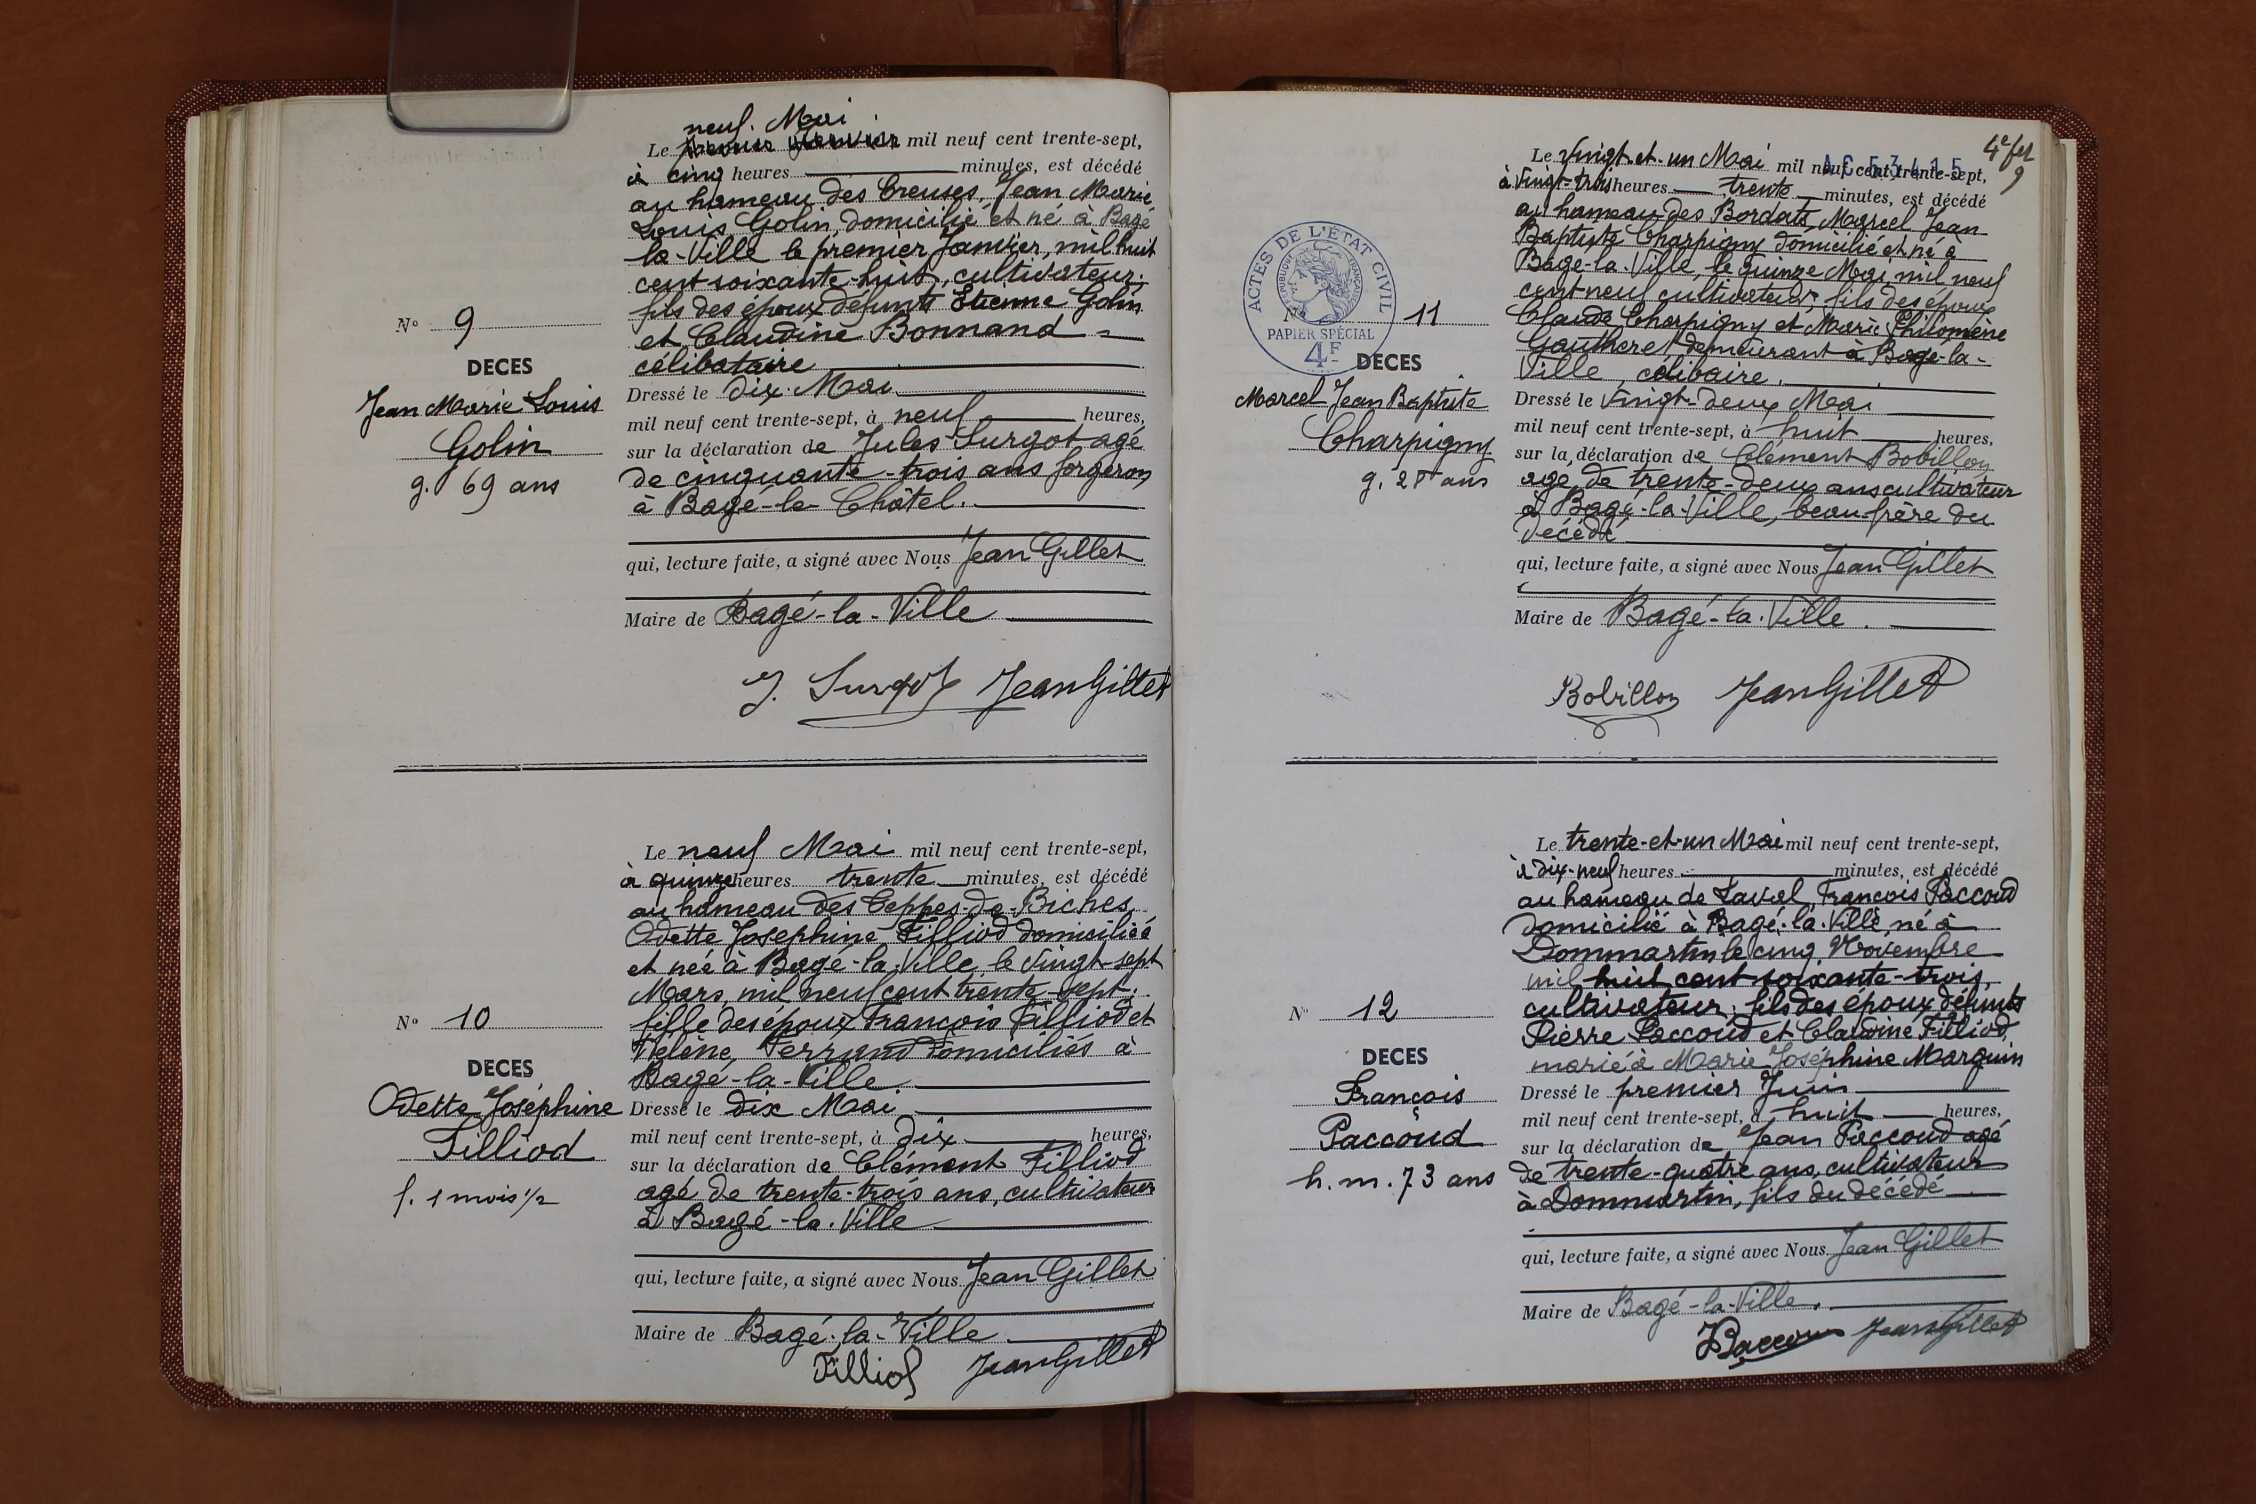 neuf. Mai
Le premier Janvier mil neuf cent trente-sept,
à cinq heures minutes, est décédé
au hameau des Creuses, Jean Marie
Louis Golin, domicilié et né à Bagé
la-Ville le premier Janvier, mil huit
cent soixante-huit, cultivateur;
fils des époux défunts Etienne Golin
et Claudine Bonnand =
célibataire
Dressé le dix Mai
mil neuf cent trente-sept, à neuf heures,
sur la déclaration de Jules Surgot agé
de cinquante-trois ans forgeron
à Bagé-le-Châtel.
qui, lecture faite, a signé avec Nous Jean Gillet
Maire de Bagé-la-Ville
J. Surgot Jean Gillet
N° 9
DECES
Jean Marie Louis
Golin
g. 69 ans
Le neuf Mai mil neuf cent trente-sept,
à quinze heures trente minutes, est décédé
au hameau des Teppes-de-Biches
Odette Joséphine Filliod domiciliée
et née à Bagé-la-Ville le vingt-sept
Mars, mil neuf cent trente-sept;
fille des époux François Filliod et
Hélène Ferrand domiciliés à
Bagé-la-Ville
Dressé le dix Mai
mil neuf cent trente-sept, à dix heures,
sur la déclaration de Clément Filliod
agé de trente-trois ans, cultivateur
à Bagé-la-Ville
qui, lecture faite, a signé avec Nous Jean Gillet
Maire de Bagé-la-Ville
Filliod Jean Gillet
N° 10
DECES
Odette Joséphine
Filliod
f. 1 mois 1/2
4e fet
9
AC 53415
Le vingt-et-un Mai mil neuf cent trente-sept,
à vingt-trois heures trente minutes, est décédé
au hameau des Bordats, Marcel Jean
Baptiste Charpigny domicilié et né à
Bagé-la-Ville, le quinze Mai mil neuf
cent neuf cultivateur; fils des époux
Claude Charpigny et Marie Philomène
Gautheret demeurant à Bagé-la-
Ville, célibaire.
Dressé le vingt-deux Mai
mil neuf cent trente-sept, à huit heures,
sur la déclaration de Clément Bobillon
agé de trente-deux ans cultivateur
à Bagé-la-Ville, beau-frère du
décédé
qui, lecture faite, a signé avec Nous Jean Gillet
Maire de Bagé-la-Ville.
Bobillon Jean Gillet
ACTES DE L'ÉTAT CIVIL
RÉPUBLIQUE FRANÇAISE
PAPIER SPÉCIAL
4F
N° 11
DECES
Marcel Jean Baptiste
Charpigny
g. 28 ans
Le trente-et-un Mai mil neuf cent trente-sept,
à dix-neuf heures minutes, est décédé
au hameau de Laval, François Paccoud
domicilié à Bagé-la-Ville, né à
Dommartin le cinq Novembre
mil huit cent soixante-trois,
cultivateur; fils des époux défunts
Pierre Paccoud et Claudine Filliod,
marié à Marie Joséphine Marguin
Dressé le premier Juin
mil neuf cent trente-sept, à huit heures,
sur la déclaration de Jean Paccoud agé
de trente-quatre ans, cultivateur
à Dommartin, fils du décédé
qui, lecture faite, a signé avec Nous Jean Gillet
Maire de Bagé-la-Ville.
JPaccoud Jean Gillet
N° 12
DECES
François
Paccoud
h. m. 73 ans